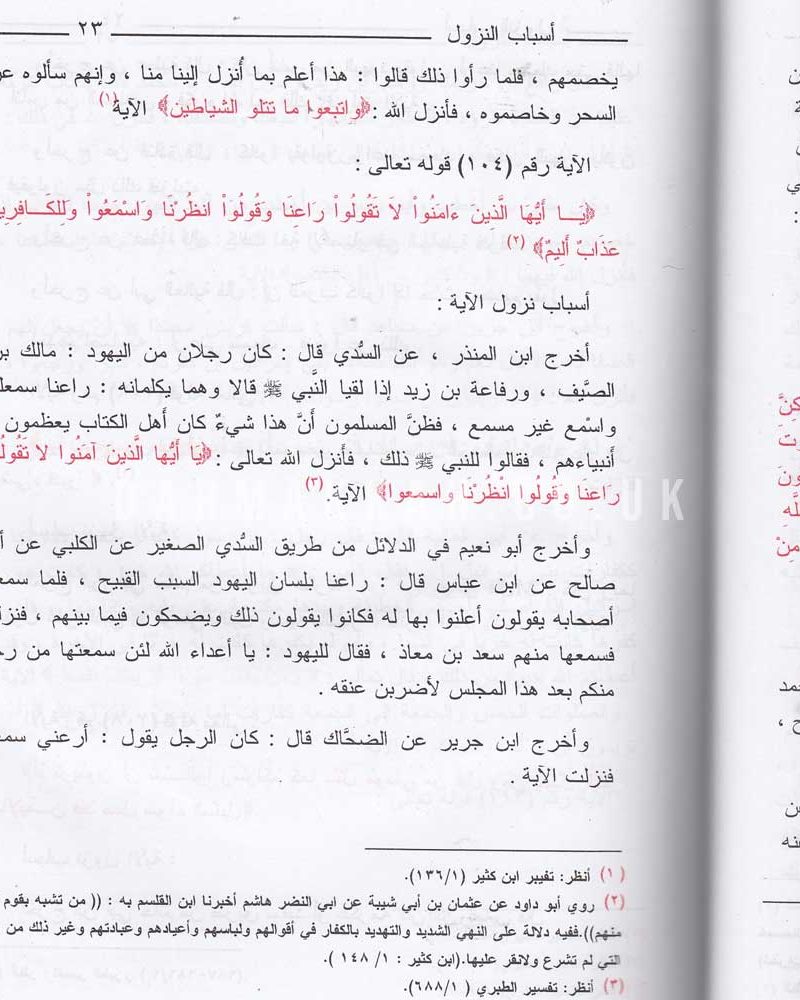 أسباب النزول ٢٣
يخصمهم ، فلما رأوا ذلك قالوا : هذا أعلم بما أُنزل إلينا منا ، وإنهم سألوه عن
السحر وخاصموه ، فأنزل الله : ﴿واتبعوا ما تتلو الشياطين﴾ الآية(١)
الآية رقم (١٠٤) قوله تعالى :
﴿يَـا أَيُّهَا الَّذِينَ ءَامَنُواْ لاَ تَقُولُواْ رَاعِنَا وَقُولُواْ انظُرْنَا وَاسْمَعُواْ وَلِلكَـافِرِينَ
عَذَابٌ أَلِيمٌ﴾ (٢)
أسباب نزول الآية :
أخرج ابن المنذر ، عن السُّدي قال : كان رجلان من اليهود : مالك بن
الصَّيف ، ورفاعة بن زيد إذا لقيا النَّبي ﷺ قالا وهما يكلمانه : راعنا سمعك
واسْمع غير مسمع ، فظنَّ المسلمون أنَّ هذا شيءٌ كان أهل الكتاب يعظمون
أنبياءهم ، فقالوا للنبي ﷺ ذلك ، فأنزل الله تعالى : ﴿يَا أَيُّها الَّذِينَ آمَنُوا لا تقُولُوا
رَاعِنَا وَقُولُوا انْظُرْنَا واسمعوا﴾ الآية.(٣)
وأخرج أبو نعيم في الدلائل من طريق السُّدي الصغير عن الكلبي عن أبي
صالح عن ابن عباس قال : راعنا بلسان اليهود السبب القبيح ، فلما سمعوا
أصحابه يقولون أعلنوا بها له فكانوا يقولون ذلك ويضحكون فيما بينهم ، فنزلت
فسمعها منهم سعد بن معاذ ، فقال لليهود : يا أعداء الله لئن سمعتها من رجل
منكم بعد هذا المجلس لأضربن عنقه .
وأخرج ابن جرير عن الضحَّاك قال : كان الرجل يقول : أرعني سمعك
فنزلت الآية .
(١) أنظر: تفيبر ابن كثير (١٣٦/١).
(٢) روي أبو داود عن عثمان بن أبي شيبة عن ابي النضر هاشم أخبرنا ابن القلسم به : (( من تشبه بقوم
منهم)).ففيه دلالة على النهي الشديد والتهديد بالكفار في أقوالهم ولباسهم وأعيادهم وعبادتهم وغير ذلك من
التي لم تشرع ولانقر عليها.(ابن كثير : ١/ ١٤٨ ).
(٣) أنظر: تفسير الطبري ( ٦٨٨/١).